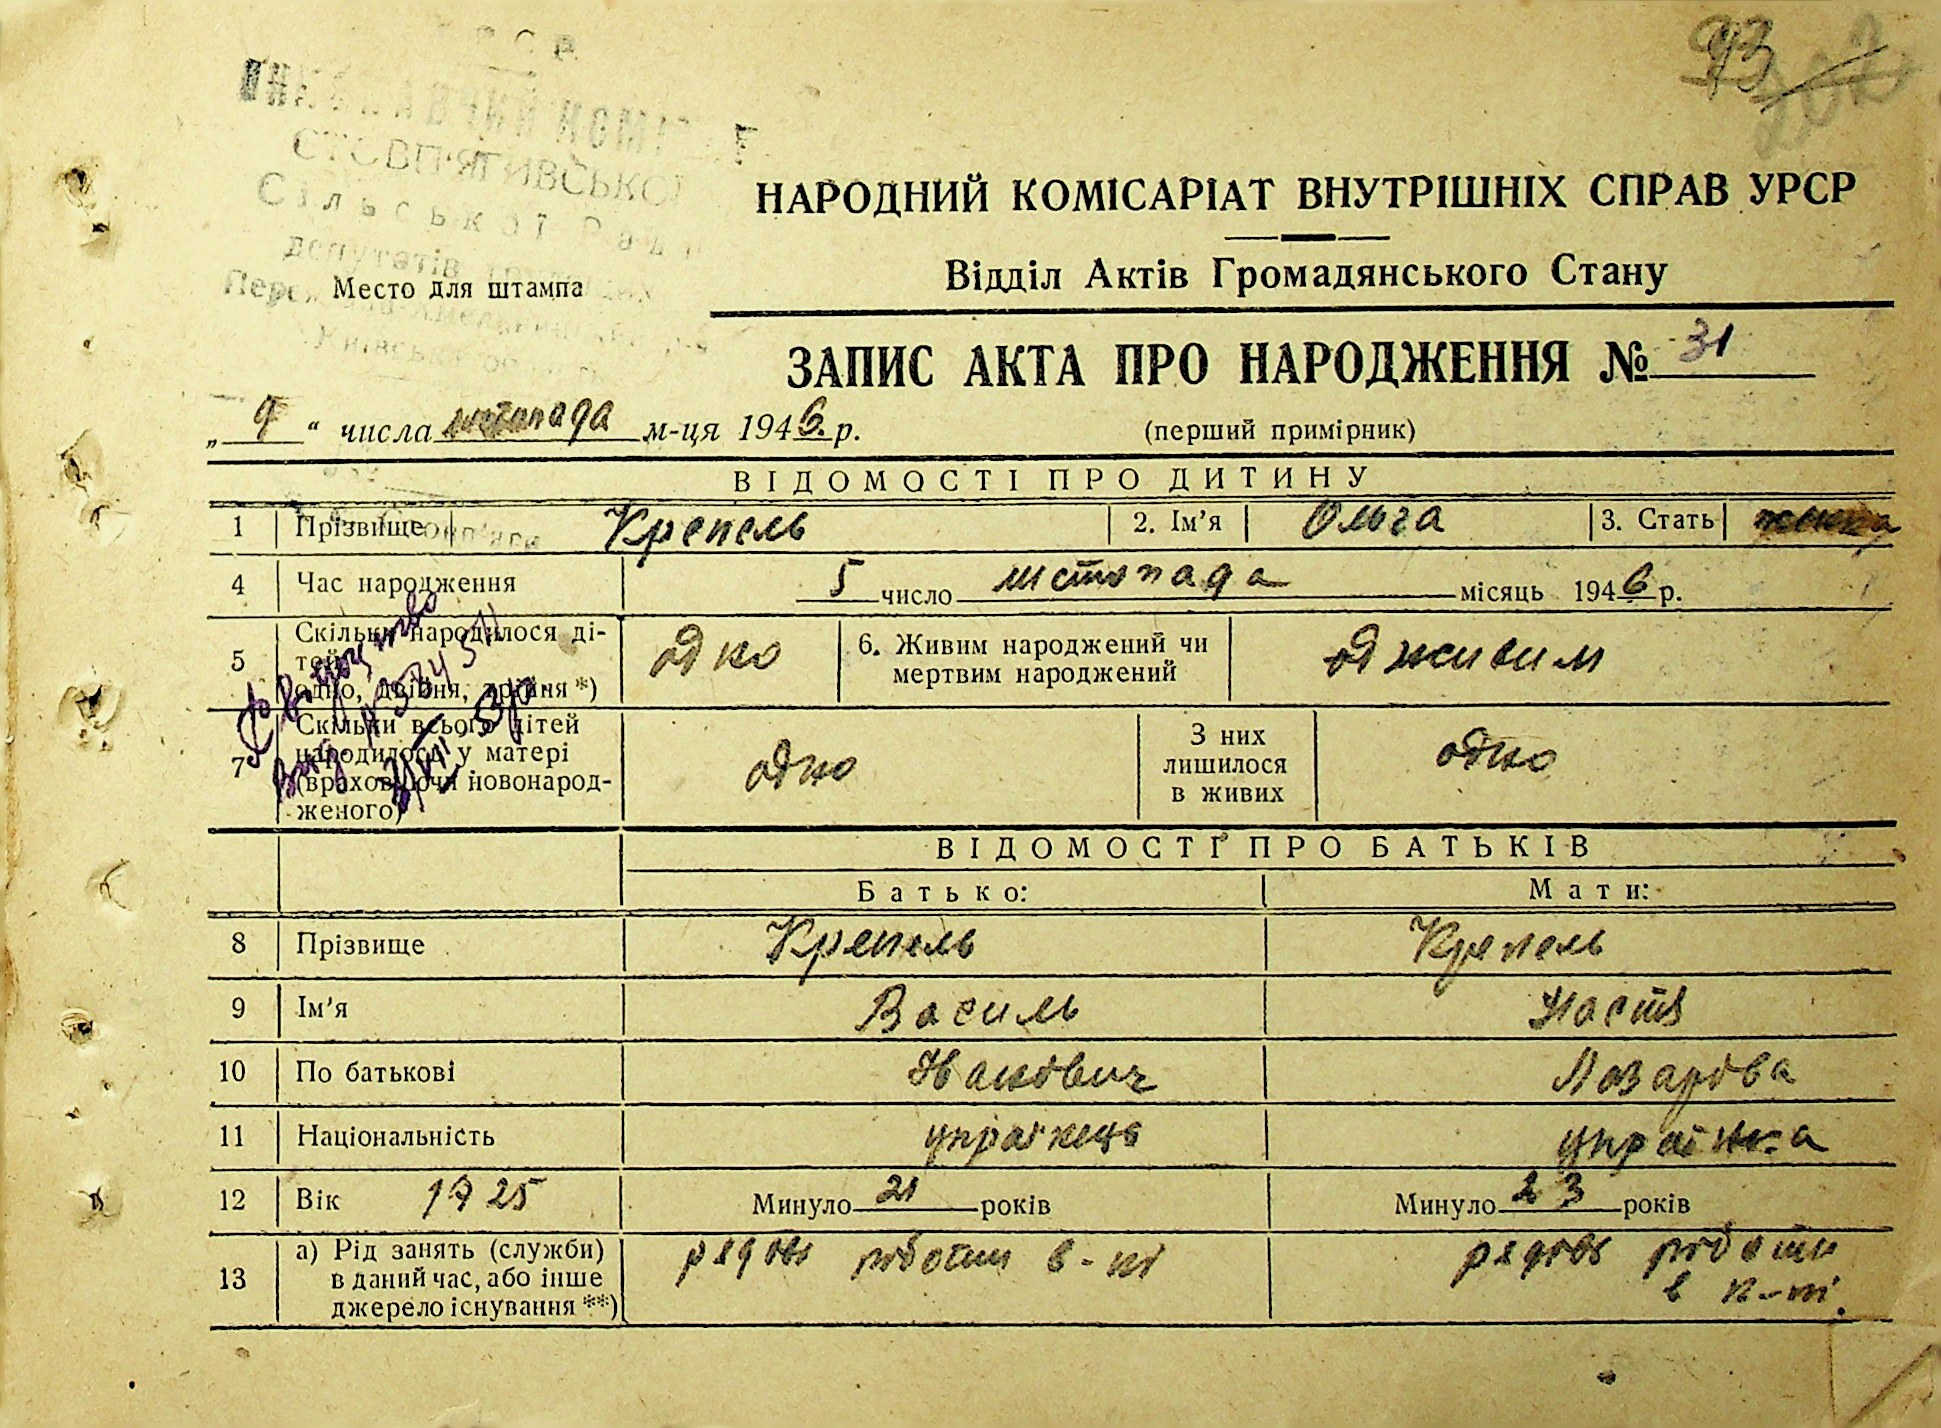 93
ВИКОНАВЧИЙ КОМІТЕТ
СТОВП'ЯГИВСЬКОЇ
Сільської Ради
депутатів
Место для штампа
НАРОДНИЙ КОМІСАРІАТ ВНУТРІШНІХ СПРАВ УРСР
Відділ Актів Громадянського Стану
ЗАПИС АКТА ПРО НАРОДЖЕННЯ № 31
„ 9 “ числа листопада м-ця 1946 р.
(перший примірник)
ВІДОМОСТІ ПРО ДИТИНУ
1 Прізвище Крепель 2. Ім'я Ольга 3. Стать жінка
4 Час народження 5 число листопада місяць 1946 р.
5 Скільки народилося ді-
тей:
одно, двійня, трійня *)
одно
6. Живим народжений чи
мертвим народжений
живим
7 Скільки всього дітей
народилося у матері
(враховуючи новонарод-
женого)
одно
З них
лишилося
в живих
одно
Свидоцтво
ВІДОМОСТІ ПРО БАТЬКІВ
Батько: Мати:
8 Прізвище Крепель Крепель
9 Ім'я Василь Настя
10 По батькові Іванович Лазарівна
11 Національність українець українка
12 Вік 1925 Минуло 21 років Минуло 23 років
13 а) Рід занять (служби)
в даний час, або інше
джерело існування **)
рядові роботи в к-ві
рядові роботи
в к-ві.